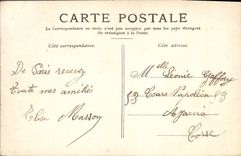 CARTE POSTALE
La Correspondance au recto n'est pas acceptée par tous les pays étrangers
(Se renseigner à la Poste)
Côté correspondance.
Côté adresse.
De Paris recevez
toute mes amitiés
Elise Masson
Melle Léonie
59 Cours Napoléon 59
Ajaccio
Corse